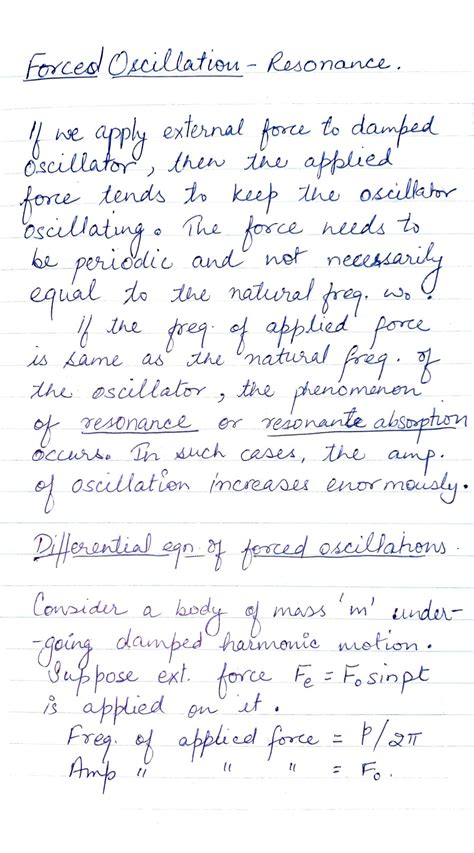 Forced Oscillation - Resonance.
If we apply external force to damped
oscillator, then the applied
force tends to keep the oscillator
oscillating. The force needs to
be periodic and not necessarily
equal to the natural freq. ω₀.
If the freq. of applied force
is same as the natural freq. of
the oscillator, the phenomenon
of resonance or resonante absorption
occurs. In such cases, the amp.
of oscillation increases enormously.
Differential eqn. of forced oscillations.
Consider a body of mass 'm' under-
-going damped harmonic motion.
Suppose ext. force Fe = F₀ sinpt
is applied on it.
Freq. of applied force = p/2π
Amp " " " = F₀.